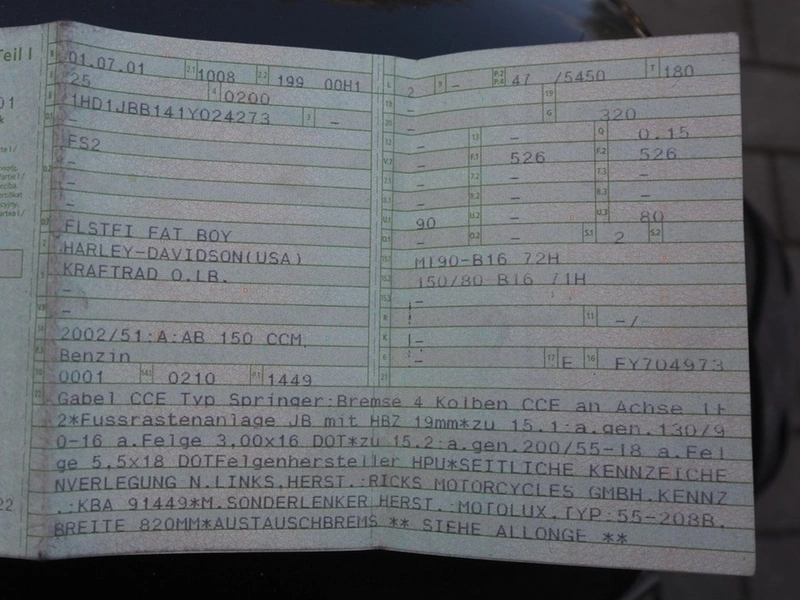 Teil I
B 01.07.01 2.1 1008 2.2 199 00H1
25 4 0200
1HD1JBB141Y024273 3 -
-
FS2
-
-
-
FLSTFI FAT BOY
HARLEY-DAVIDSON(USA)
KRAFTRAD O.LB.
-
-
2002/51:A:AB 150 CCM,
Benzin
0001 14.1 0210 P.1 1449
L 2 9 - P.2 P.4 47 /5450 T 180
- 19
- G 320
- 13 - Q 0.15
- F.1 526 F.2 526
- 7.2 - 7.3 -
- 8.2 - 8.3 -
U.1 90 U.2 - U.3 80
- O.2 - S.1 2 S.2
MT90-B16 72H
150/80 B16 71H
-
- 11 -/
K -
6 - 17 E 16 FY704973
21
22 Gabel CCE Typ Springer:Bremse 4 Kolben CCE an Achse lt
2*Fussrastenanlage JB mit HBZ 19mm*zu 15.1:a.gen.130/9
0-16 a.Felge 3,00x16 DOT*zu 15.2:a.gen.200/55-18 a.Fel
ge 5,5x18 DOTFelgenhersteller HPU*SEITLICHE KENNZEICHE
NVERLEGUNG N.LINKS,HERST.:RICKS MOTORCYCLES GMBH,KENNZ
.:KBA 91449*M.SONDERLENKER HERST.:MOTOLUX,TYP:55-208B,
BREITE 820MM*AUSTAUSCHBREMS ** SIEHE ALLONGE **